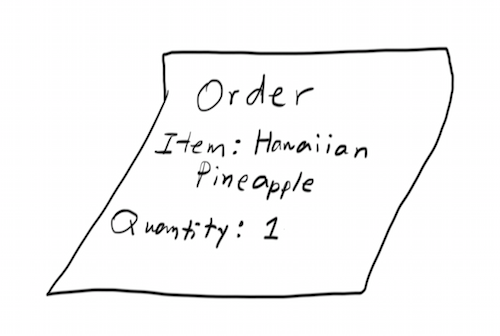 Order
Item: Hawaiian
Pineapple
Quantity: 1